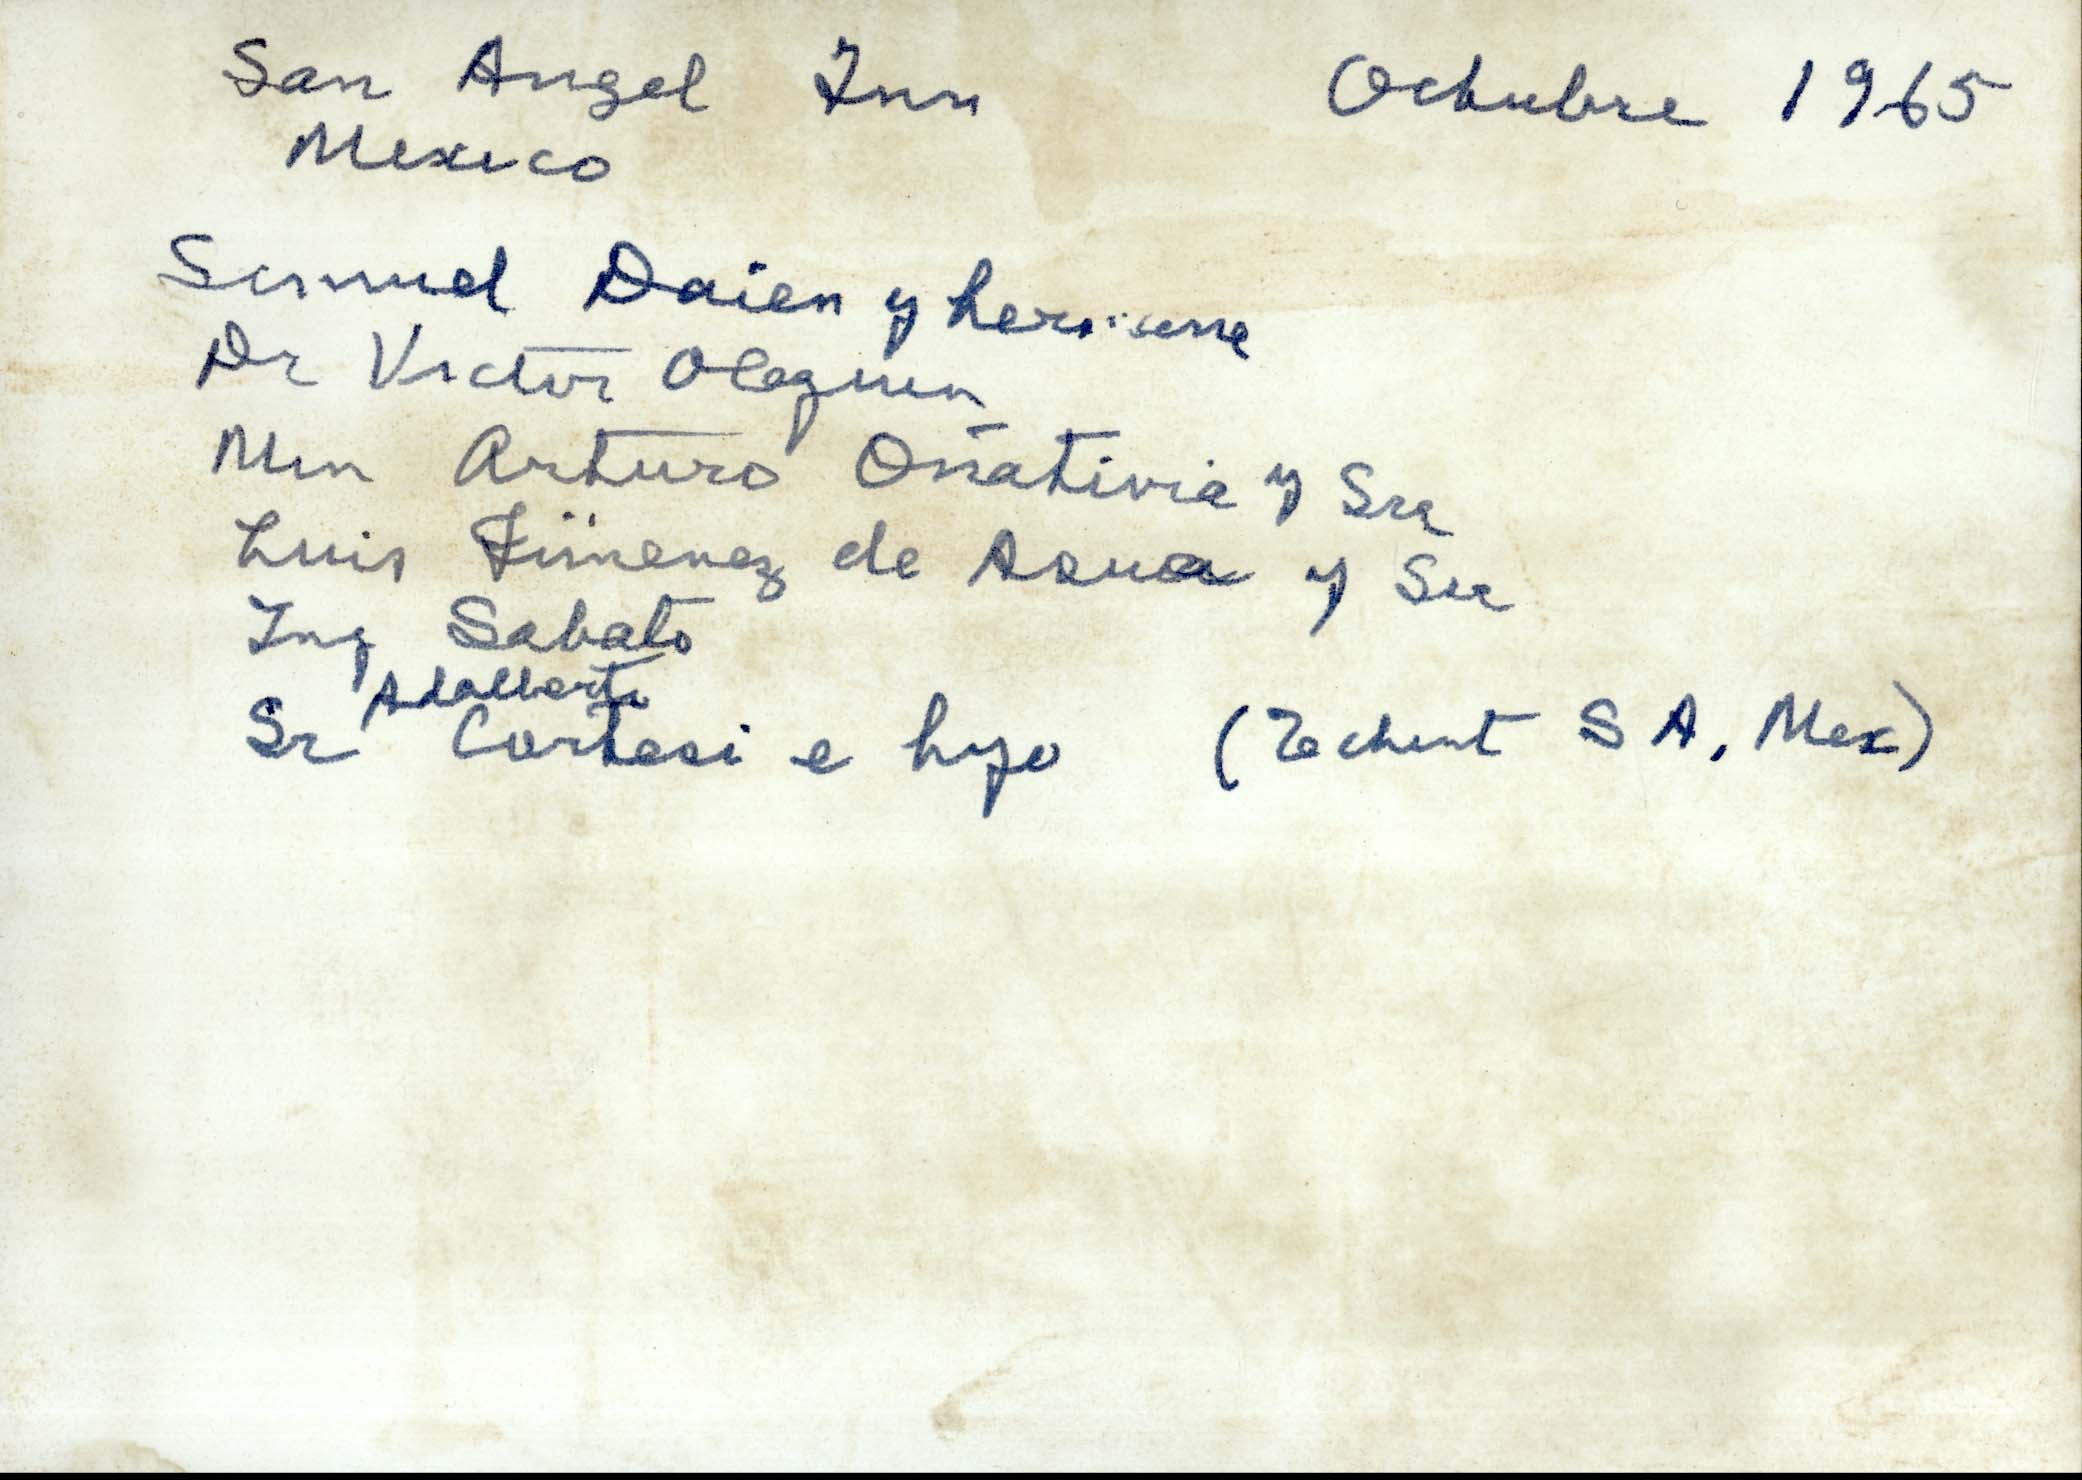 San Angel Inn Octubre 1965
Mexico
Samuel Daien y
Dr Victor Oleguen
Min Arturo Oñativia y Sra
Luis Jimenez de Asua y Sra
Ing Sabato
Adalberto
Sr Cortesi e hijo (Techint S A, Mex)